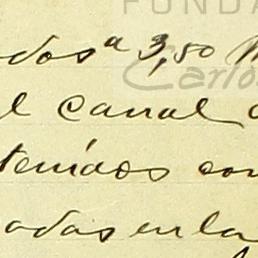 FUNDA
dos a 3,50 m
Carlos
el canal
tenidos con
adas en la